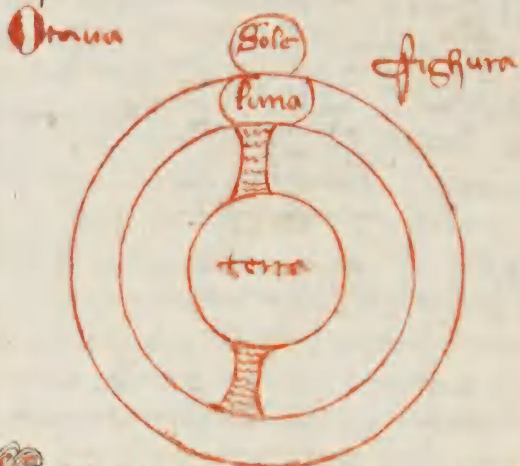 Otaua
Sole
fighura
luna
terra